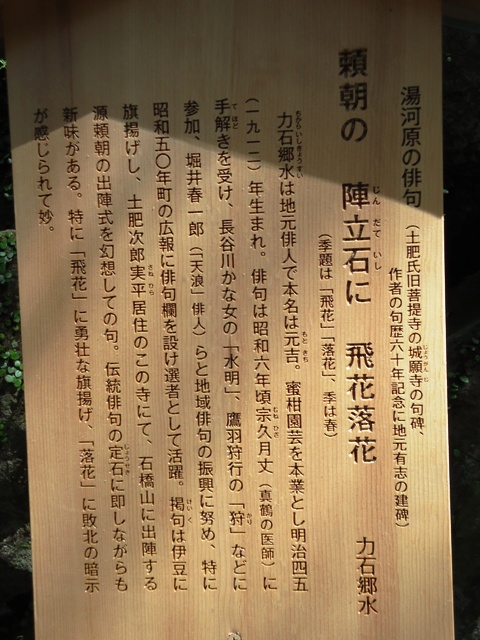 湯河原の俳句
（土肥氏旧菩提寺の城願寺の句碑、
作者の句歴六十年記念に地元有志の建碑）
頼朝の　陣立石に　飛花落花　　力石郷水
（季題は「飛花」「落花」、季は春）
力石郷水は地元俳人で本名は元吉。蜜柑園芸を本業とし明治四五
（一九一二）年生まれ。俳句は昭和六年頃宗久月丈（真鶴の医師）に
手解きを受け、長谷川かな女の「水明」、鷹羽狩行の「狩」などに
参加、堀井春一郎（「天浪」俳人）らと地域俳句の振興に努め、特に
昭和五〇年町の広報に俳句欄を設け選者として活躍。掲句は伊豆に
旗揚げし、土肥次郎実平居住のこの寺にて、石橋山に出陣する
源頼朝の出陣式を幻想しての句。伝統俳句の定石に即しながらも
新味がある。特に「飛花」に勇壮な旗揚げ、「落花」に敗北の暗示
が感じられて妙。